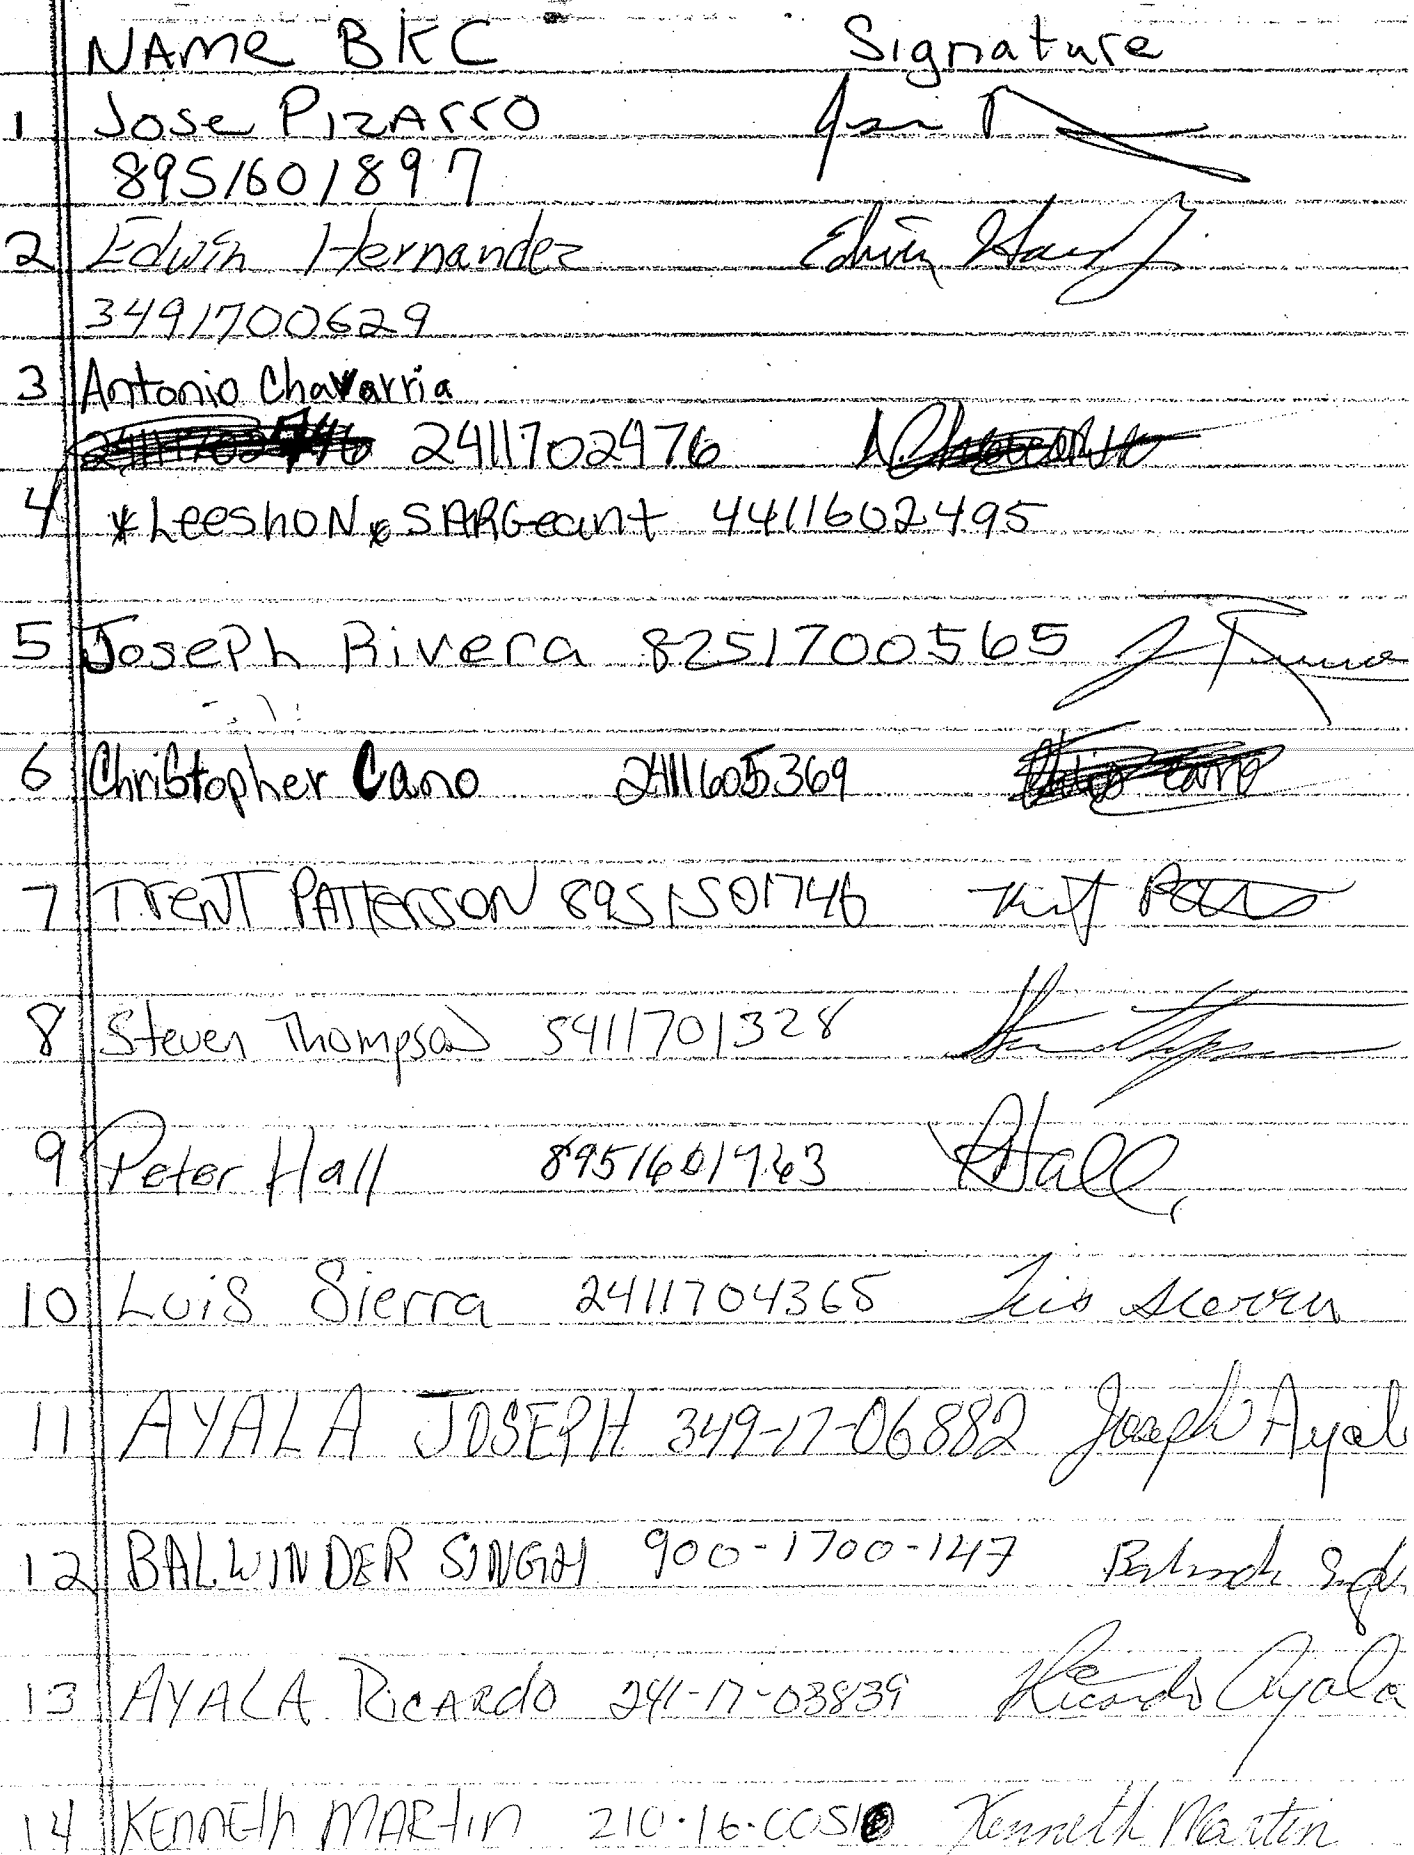 NAME BKC Signature
1 Jose PIZARRO
8951601897
2 Edwin Hernandez Edwin
3491700629
3 Antonio Chavarria
2411702476
4 *LeeshON* SARGeant 4411602495
5 Joseph Rivera 8251700565
6 Christopher Cano 2411605369
7 TRENT PATTERSON 8951501746
8 Steven Thompson 5411701328
9 Peter Hall PHall
10 Luis Sierra 2411704365 Luis Sierra
11 AYALA JOSEPH 349-17-06882 Joseph Ayal
12 BALWINDER SINGH 900-1700-147
13 AYALA RICARDO 241-17-03839 Ricardo Ayala
14 KENNETH MARTIN Kenneth Martin